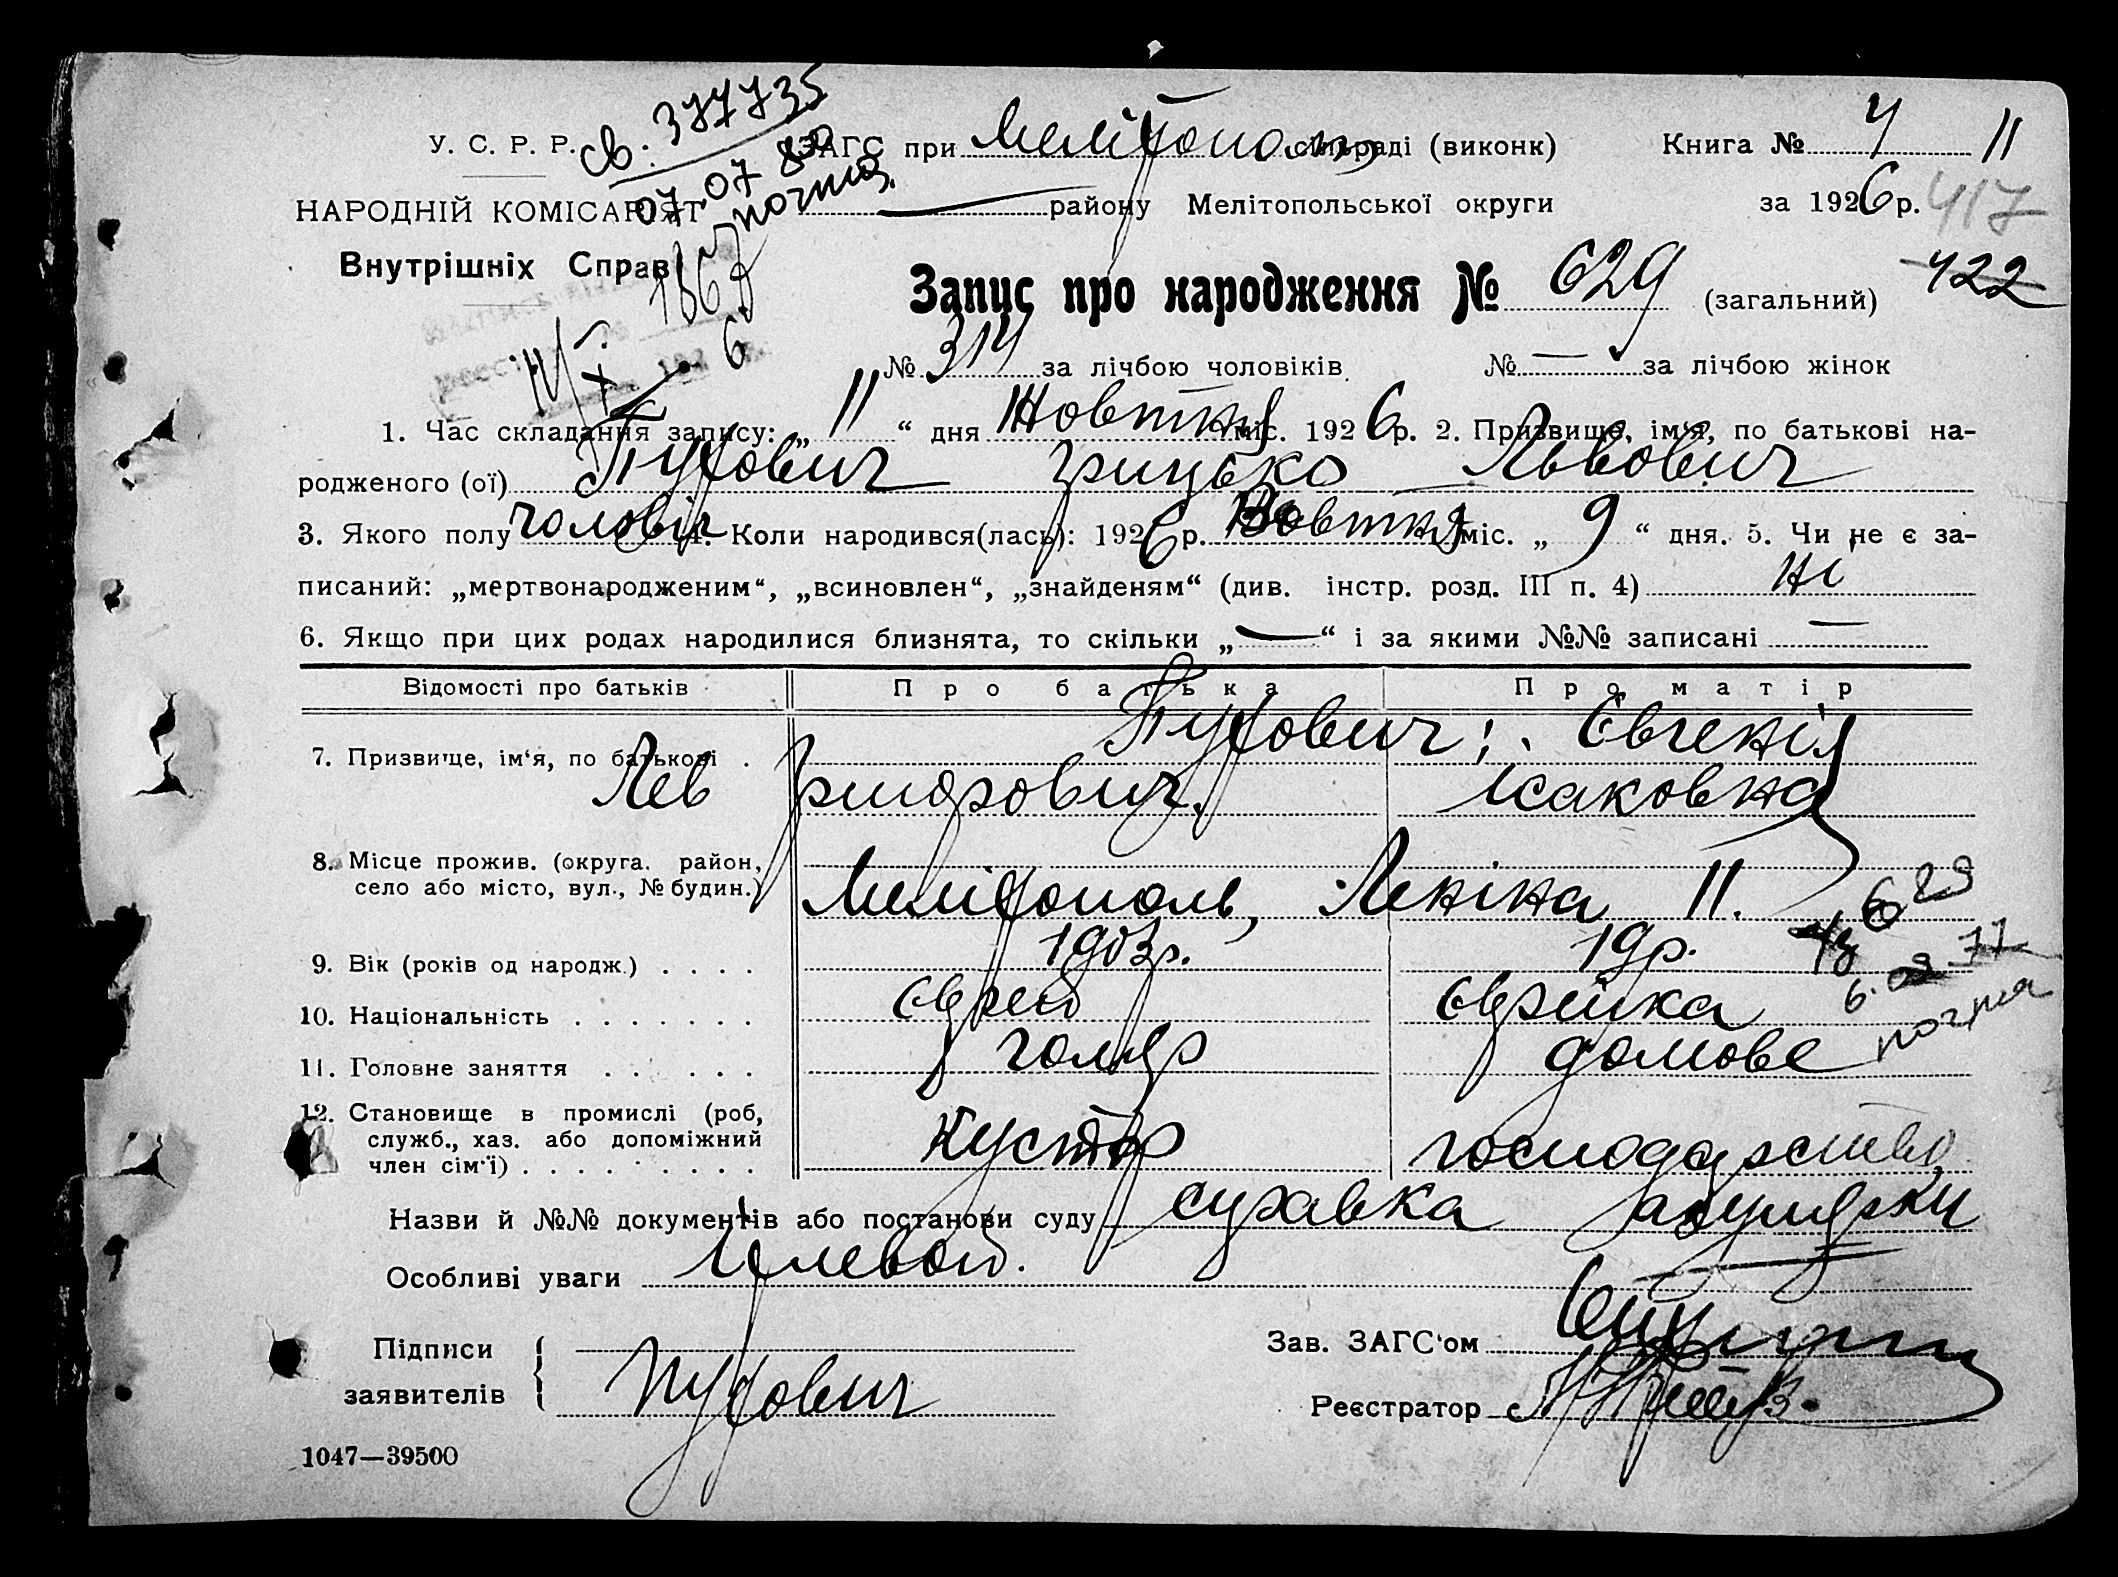 св. 377735
07.07 80
почта.
У. С. Р. Р. ЗАГС при Мелітополь сільраді (виконк) Книга № 4 11
НАРОДНІЙ КОМІСАРІЯТ — району Мелітопольської округи за 1926 р. 417
Внутрішніх Справ
Запис про народження № 629 (загальний) 422
№ 314 за лічбою чоловіків № — за лічбою жінок
1. Час складання запису: „ 11 “ дня Жовтня міс. 1926 р. 2. Призвище, ім‘я, по батькові на-
родженого (ої) Пухович Грицько Львович
3. Якого полу чоловіч 4. Коли народився(лась): 1926 р. Жовтня міс. „ 9 “ дня. 5. Чи не є за-
писаний: „мертвонародженим“, „всиновлен“, „знайденям“ (див. інстр. розд. III п. 4) ні
6. Якщо при цих родах народилися близнята, то скільки „ — “ і за якими №№ записані —
Відомості про батьків Про батька Про матір
Пухович: Євгенія
7. Призвище, ім‘я, по батькові . Лев Григорович Ісаковна
8. Місце прожив. (округа, район,
село або місто, вул., № будин.) Мелітополь, Леніна 11.
629
9. Вік (років од народж.) . . . . 1903р. 19р.
6. 09 77
почта
10. Національність . . . . . . . Єврей Єврейка
11. Головне заняття . . . . . . домове
12. Становище в промислі (роб,
служб., хаз. або допоміжний
член сім‘ї) . . . . . . . . . . Кустар господарство
Назви й №№ документів або постанови суду справка акушерки
Особливі уваги
Підписи
заявителів Пухович
Зав. ЗАГС‘ом
Реєстратор
1047—39500